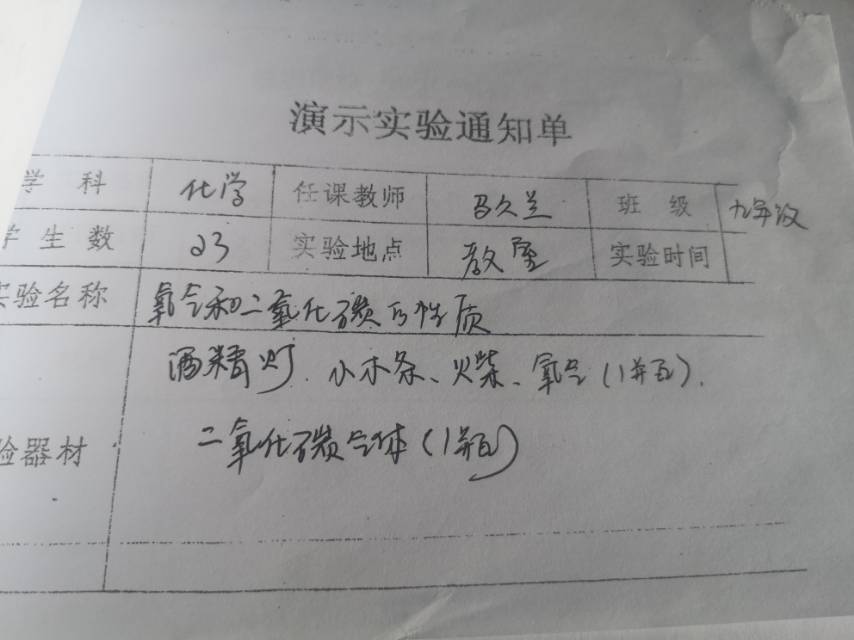 演示实验通知单
学科 化学 任课教师 马久兰 班级 九年级
学生数 23 实验地点 教室 实验时间
实验名称 氧气和二氧化碳的性质
酒精灯、小木条、火柴、氧气(1瓶)、
验器材 二氧化碳气体(1瓶)